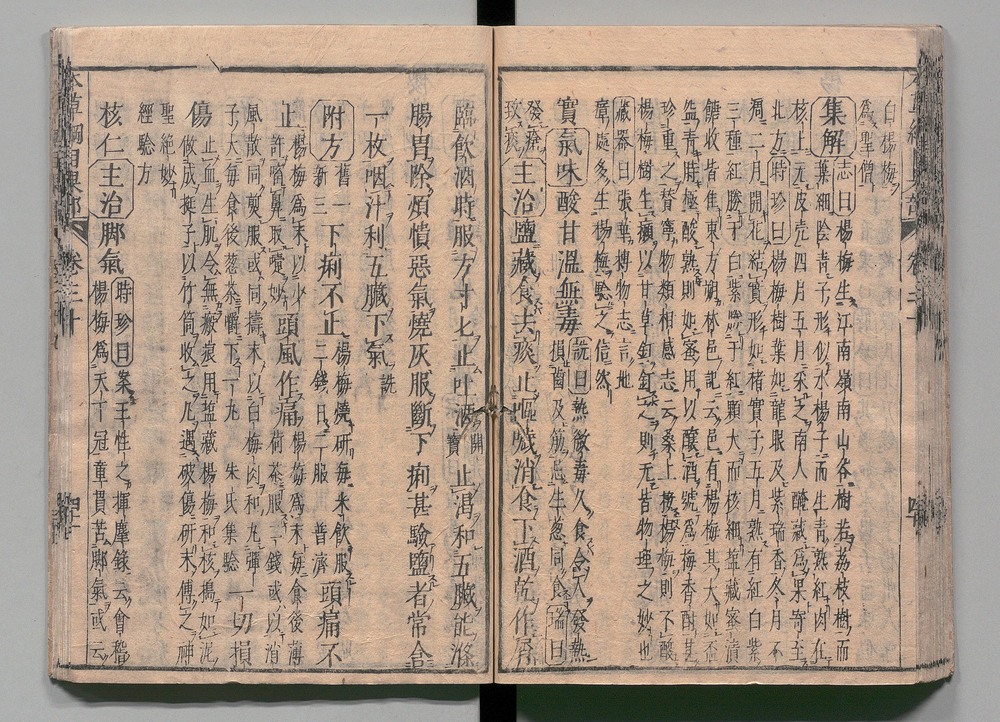 白楊梅
爲聖僧
集解志曰楊梅生江南嶺南山谷樹若荔枝樹而
葉細陰青子形似水楊子而生青熟紅肉在
核上无皮壳四月五月采之南人醃藏爲果寄至
北方時珍曰楊梅樹葉如龍眼及紫瑞香冬月不
凋二月開花結實形如楮實子五月熟有紅白紫
三種紅勝于白紫勝于紅顆大而核細鹽藏蜜漬
糖收皆佳東方朔林邑記云邑有楊梅其大如
盃青時極酸熟則如蜜用以釀酒號爲梅香酎甚
珍重之贊寧物類相感志云桑上接楊梅則不酸
楊梅樹生癩以甘草釘釘之則无皆物理之妙也
藏器曰張華博物志言地
瘴處多生楊梅驗之信然
實氣味酸甘溫無毒詵曰熱微毒久食令人發熱
損齒及筋忌生葱同食瑞曰
發瘡
致痰主治鹽藏食去痰止嘔噦消食下酒乾作屑
臨飲酒時服方寸匕止吐酒開
寶止渴和五臟能滌
腸胃除煩憒惡氣燒灰服斷下痢甚驗鹽者常含
一枚咽汁利五臟下氣詵
附方舊一
新三下痢不止楊梅燒研每米飲服
二錢日二服普濟頭痛不
止楊梅爲末以少
許㗜鼻取嚏妙頭風作痛楊梅爲末每食後薄
荷茶服二錢或以消
風散同煎服或同擣末以白梅肉和丸彈
子大每食後葱茶嚼下一丸 朱氏集驗一切損
傷止血生肌令無瘢痕用鹽藏楊梅和核擣如泥
做成挺子以竹筒收之凡遇破傷研末傅之神
聖絶妙
經驗方
核仁主治脚氣時珍曰案王性之揮麈錄云會稽
楊梅爲天下冠童貫苦脚氣或云
卷三十